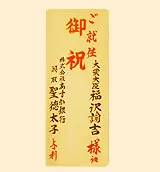 ご就任
御祝
大蔵大臣
福沢諭吉様
株式会社あすか銀行
頭取
聖徳太子
より